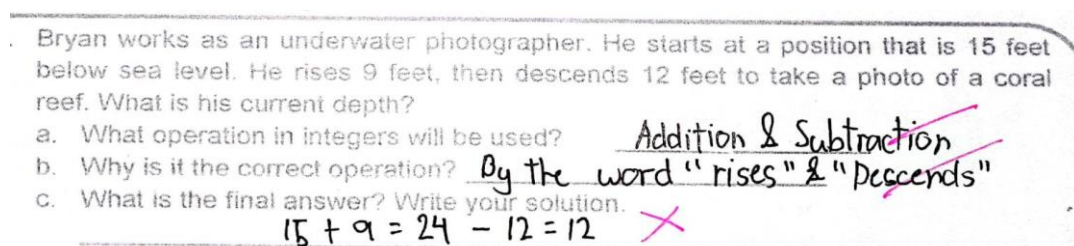 Bryan works as an underwater photographer. He starts at a position that is 15 feet
below sea level. He rises 9 feet, then descends 12 feet to take a photo of a coral
reef. What is his current depth?
a. What operation in integers will be used? Addition & Subtraction
b. Why is it the correct operation? By the word "rises" & "Descends"
c. What is the final answer? Write your solution.
15 + 9 = 24 - 12 = 12